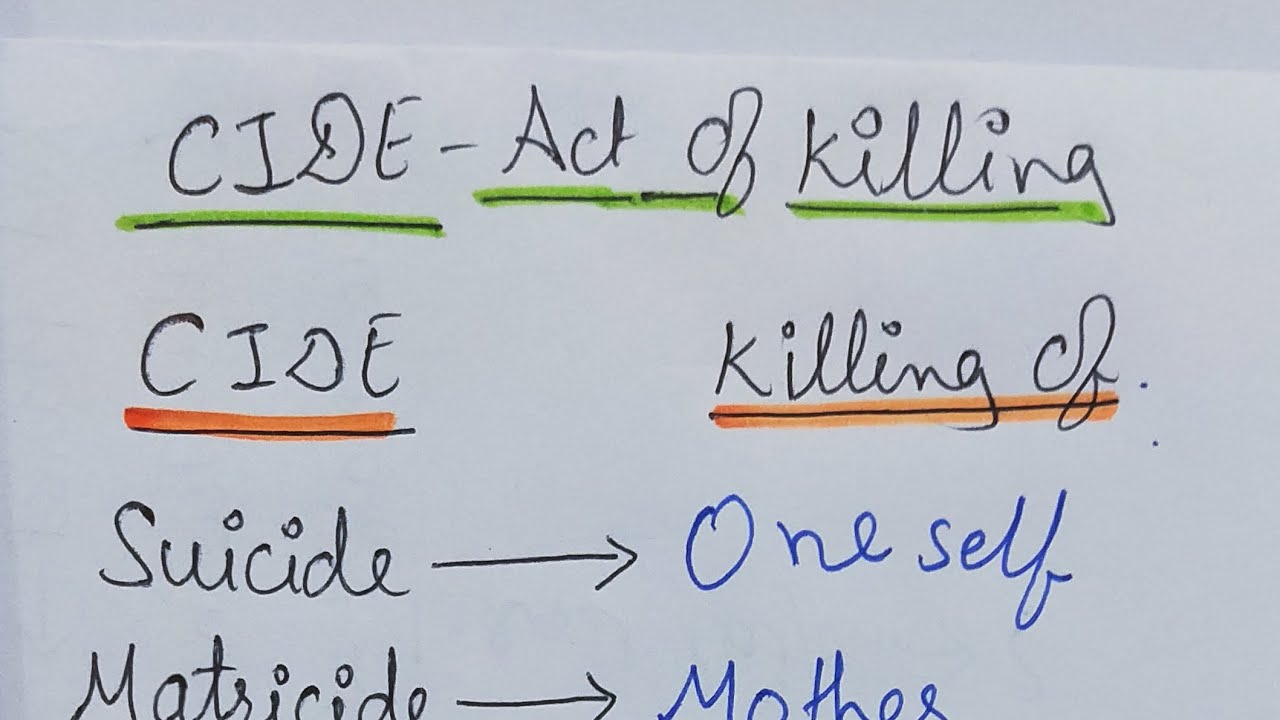 CIDE - Act Of Killing
CIDE Killing Of.
Suicide → Oneself
Matricide → Mother